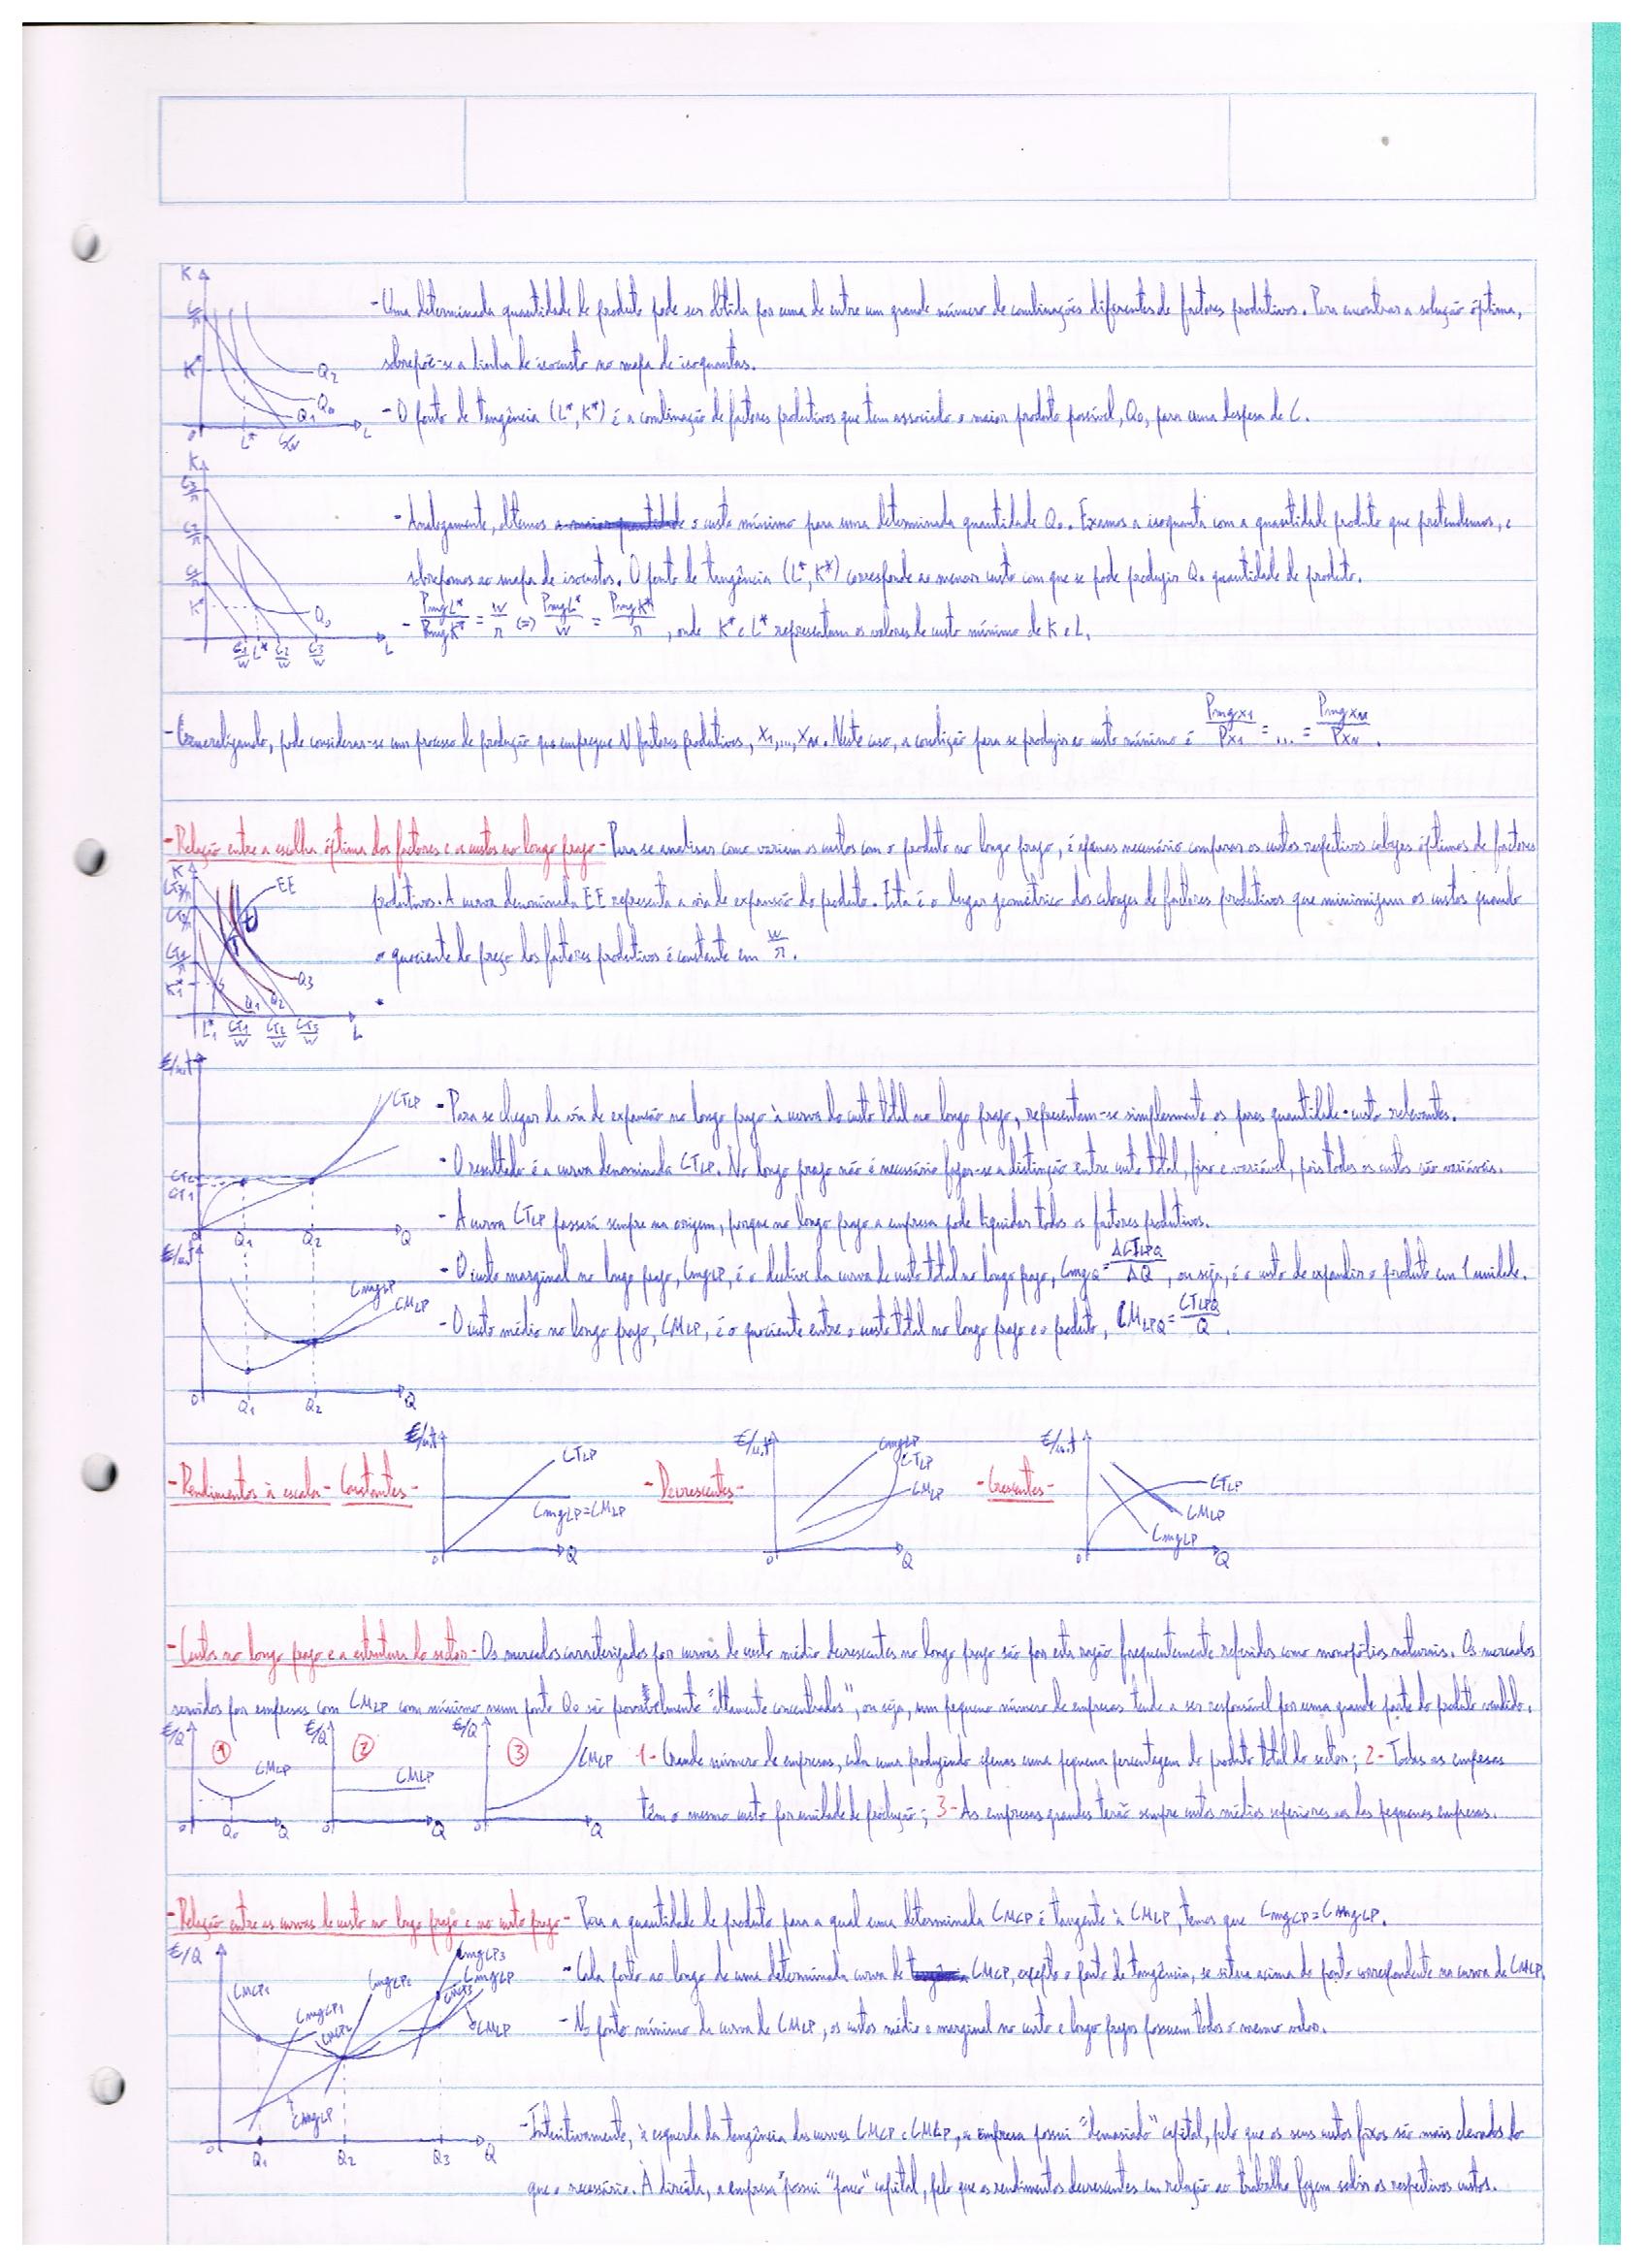 K
C/r
K*
Q2
Q0
Q1
0
L*
C/W
L
- Uma determinada quantidade de produto pode ser obtida por uma de entre um grande número de combinações diferentes de factores produtivos. Para encontrar a solução óptima,
sobrepõe-se a linha de isocusto no mapa de isoquantas.
- O ponto de tangência (L*, K*) é a combinação de factores produtivos que tem associado o maior produto possível, Q0, para uma despesa de C.
K
C3/r
C2/r
C1/r
K*
Q0
C1/W L* C2/W C3/W L
- Analogamente, obtemos a maior quantidade o custo mínimo para uma determinada quantidade Q0. Fixamos a isoquanta com a quantidade produto que pretendemos, e
sobrepomos ao mapa de isocustos. O ponto de tangência (L*, K*) corresponde ao menor custo com que se pode produzir Q0 quantidade de produto.
- PmgL*/PmgK* = w/r (=) PmgL*/w = PmgK*/r, onde K* e L* representam os valores de custo mínimo de K e L.
- Generalizando, pode considerar-se um processo de produção que empregue N factores produtivos, X1,..., XN. Neste caso, a condição para se produzir ao custo mínimo é PmgX1/PX1 = ... = PmgXN/PXN.
- Relação entre a escolha óptima dos factores e os custos no longo prazo - Para se analisar como variam os custos com o produto no longo prazo, é apenas necessário comparar os custos respectivos cabazes óptimos de factores
produtivos. A curva denominada EE representa a via de expansão do produto. Esta é o lugar geométrico dos cabazes de factores produtivos que minimizam os custos quando
o quociente do preço dos factores produtivos é constante em w/r.
K
CT3/r
CT2/r
CT1/r
K1*
EE
Q1 Q2 Q3
L1* CT1/W CT2/W CT3/W L
€/u.t
CTLP
CT2
CT1
0 Q1 Q2 Q
- Para se chegar da via de expansão no longo prazo à curva do custo total no longo prazo, representam-se simplesmente os pares quantidade-custo relevantes.
- O resultado é a curva denominada CTLP. No longo prazo não é necessário fazer-se a distinção entre custo total, fixo e variável, pois todos os custos são variáveis.
- A curva CTLP passará sempre na origem, porque no longo prazo a empresa pode liquidar todos os factores produtivos.
- O custo marginal no longo prazo, CmgLP, é o declive da curva de custo total no longo prazo, CmgQ = ΔCTLPQ/ΔQ, ou seja, é o custo de expandir o produto em 1 unidade.
- O custo médio no longo prazo, CMLP, é o quociente entre o custo total no longo prazo e o produto, CMLPQ = CTLPQ/Q.
€/u.t
CmgLP
CMLP
0 Q1 Q2 Q
- Rendimentos à escala - Constantes -
€/u.t
CTLP
CmgLP=CMLP
0 Q
- Decrescentes -
€/u.t
CmgLP
CTLP
CMLP
0 Q
- Crescentes -
€/u.t
CTLP
CMLP
CmgLP
0 Q
- Custos no longo prazo e a estrutura do sector - Os mercados caracterizados por curvas de custo médio decrescentes no longo prazo são por esta razão frequentemente referidos como monopólios naturais. Os mercados
servidos por empresas com CMLP com mínimo num ponto Q0 são provavelmente "altamente concentrados", ou seja, um pequeno número de empresas tende a ser responsável por uma grande parte do produto vendido.
€/Q
1
CMLP
0 Q0 Q
€/Q
2
CMLP
0 Q
€/Q
3
CMLP
0 Q
1 - Grande número de empresas, cada uma produzindo apenas uma pequena percentagem do produto total do sector; 2 - Todas as empresas
têm o mesmo custo por unidade de produção; 3 - As empresas grandes terão sempre custos médios superiores aos das pequenas empresas.
- Relação entre as curvas de custo no longo prazo e no curto prazo - Para a quantidade de produto para a qual uma determinada CMCP é tangente à CMLP, temos que CmgCP = CmgLP.
- Cada ponto ao longo de uma determinada curva de CMCP, excepto o ponto de tangência, se situa acima do ponto correspondente na curva de CMLP.
- No ponto mínimo da curva de CMLP, os custos médio e marginal no curto e longo prazos possuem todos o mesmo valor.
€/Q
CMCP1
CmgCP1
CMCP2
CmgCP2
CmgCP3
CmgLP
CMCP3
CMLP
CmgLP
0 Q1 Q2 Q3 Q
- Intuitivamente, à esquerda da tangência das curvas CMCP e CMLP, a empresa possui "demasiado" capital, pelo que os seus custos fixos são mais elevados do
que o necessário. À direita, a empresa possui "pouco" capital, pelo que os rendimentos decrescentes em relação ao trabalho fazem subir os respectivos custos.